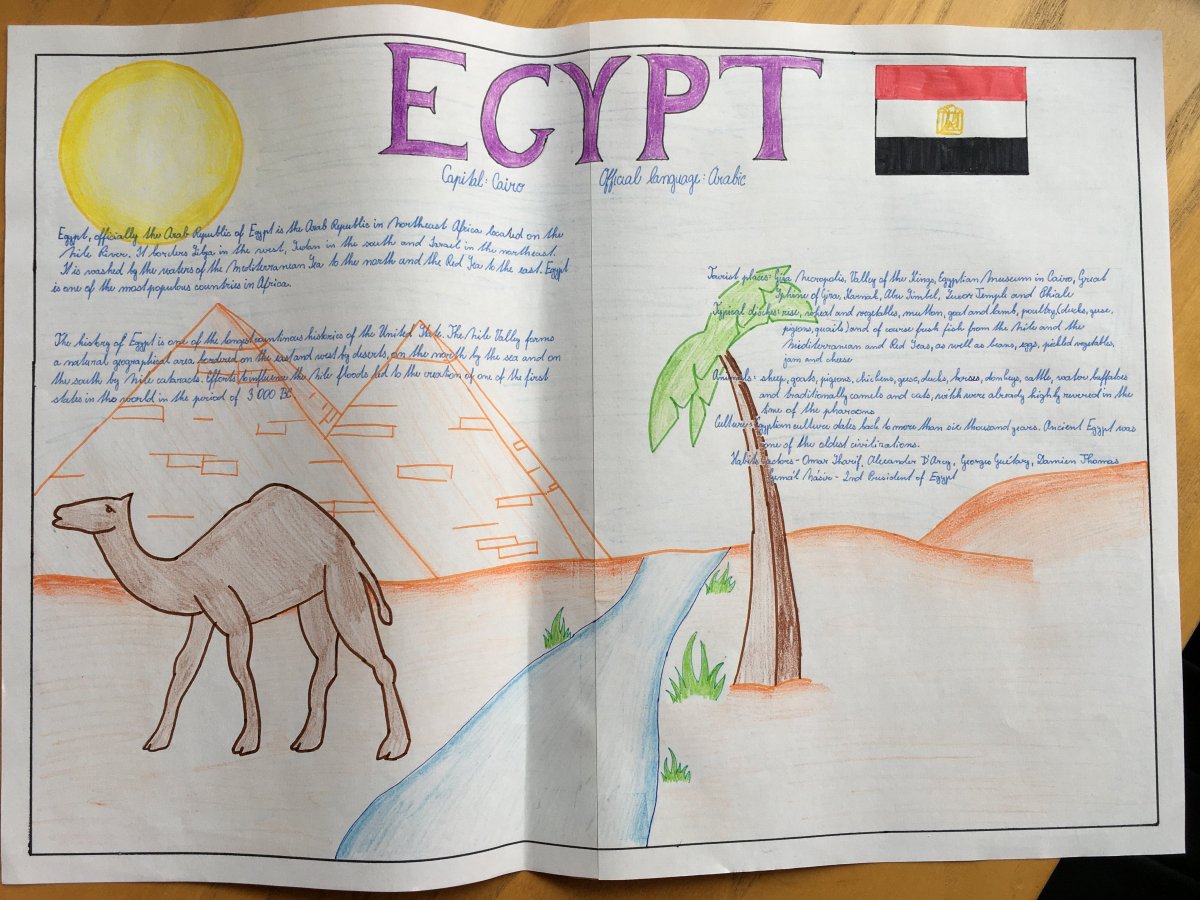 EGYPT
Capital: Cairo
Official language: Arabic
Egypt, officially the Arab Republic of Egypt is the Arab Republic in Northeast Africa located on the
Nile River. It borders Libya in the west, Sudan in the south and Israel in the northeast.
It is washed by the waters of the Mediterranean Sea to the north and the Red Sea to the east. Egypt
is one of the most populous countries in Africa.
The history of Egypt is one of the longest continuous histories of the United State. The Nile Valley forms
a natural geographical area bordered on the east and west by deserts, on the north by the sea and on
the south by Nile cataracts. Efforts to influence the Nile floods led to the creation of one of the first
states in the world in the period of 3 000 BC
Tourist places: Giza Necropolis, Valley of the Kings, Egyptian Museum in Cairo, Great
Sphinx of Giza, Karnak, Abu Simbel, Luxor Temple and Philae
Typical disches: rise, wheat and vegetables, mutton, goat and lamb, poultry (ducks, geese,
pigeons, quails) and of course fresh fish from the Nile and the
Mediterranean and Red Seas, as well as beans, eggs, pickled vegetables,
jam and cheese
Animals: sheep, goats, pigeons, chickens, geese, ducks, horses, donkeys, cattle, water buffaloes
and traditionally camels and cats, witch were already highly revered in the
time of the pharaons
Culture: Egyptian culture dates back to more than six thousand years. Ancient Egypt was
one of the oldest civilizations.
actors - Omar Sharif, Alexander D'Arcy, Georges Guétary, Damien Thomas
Gemál Násir - 2nd President of Egypt